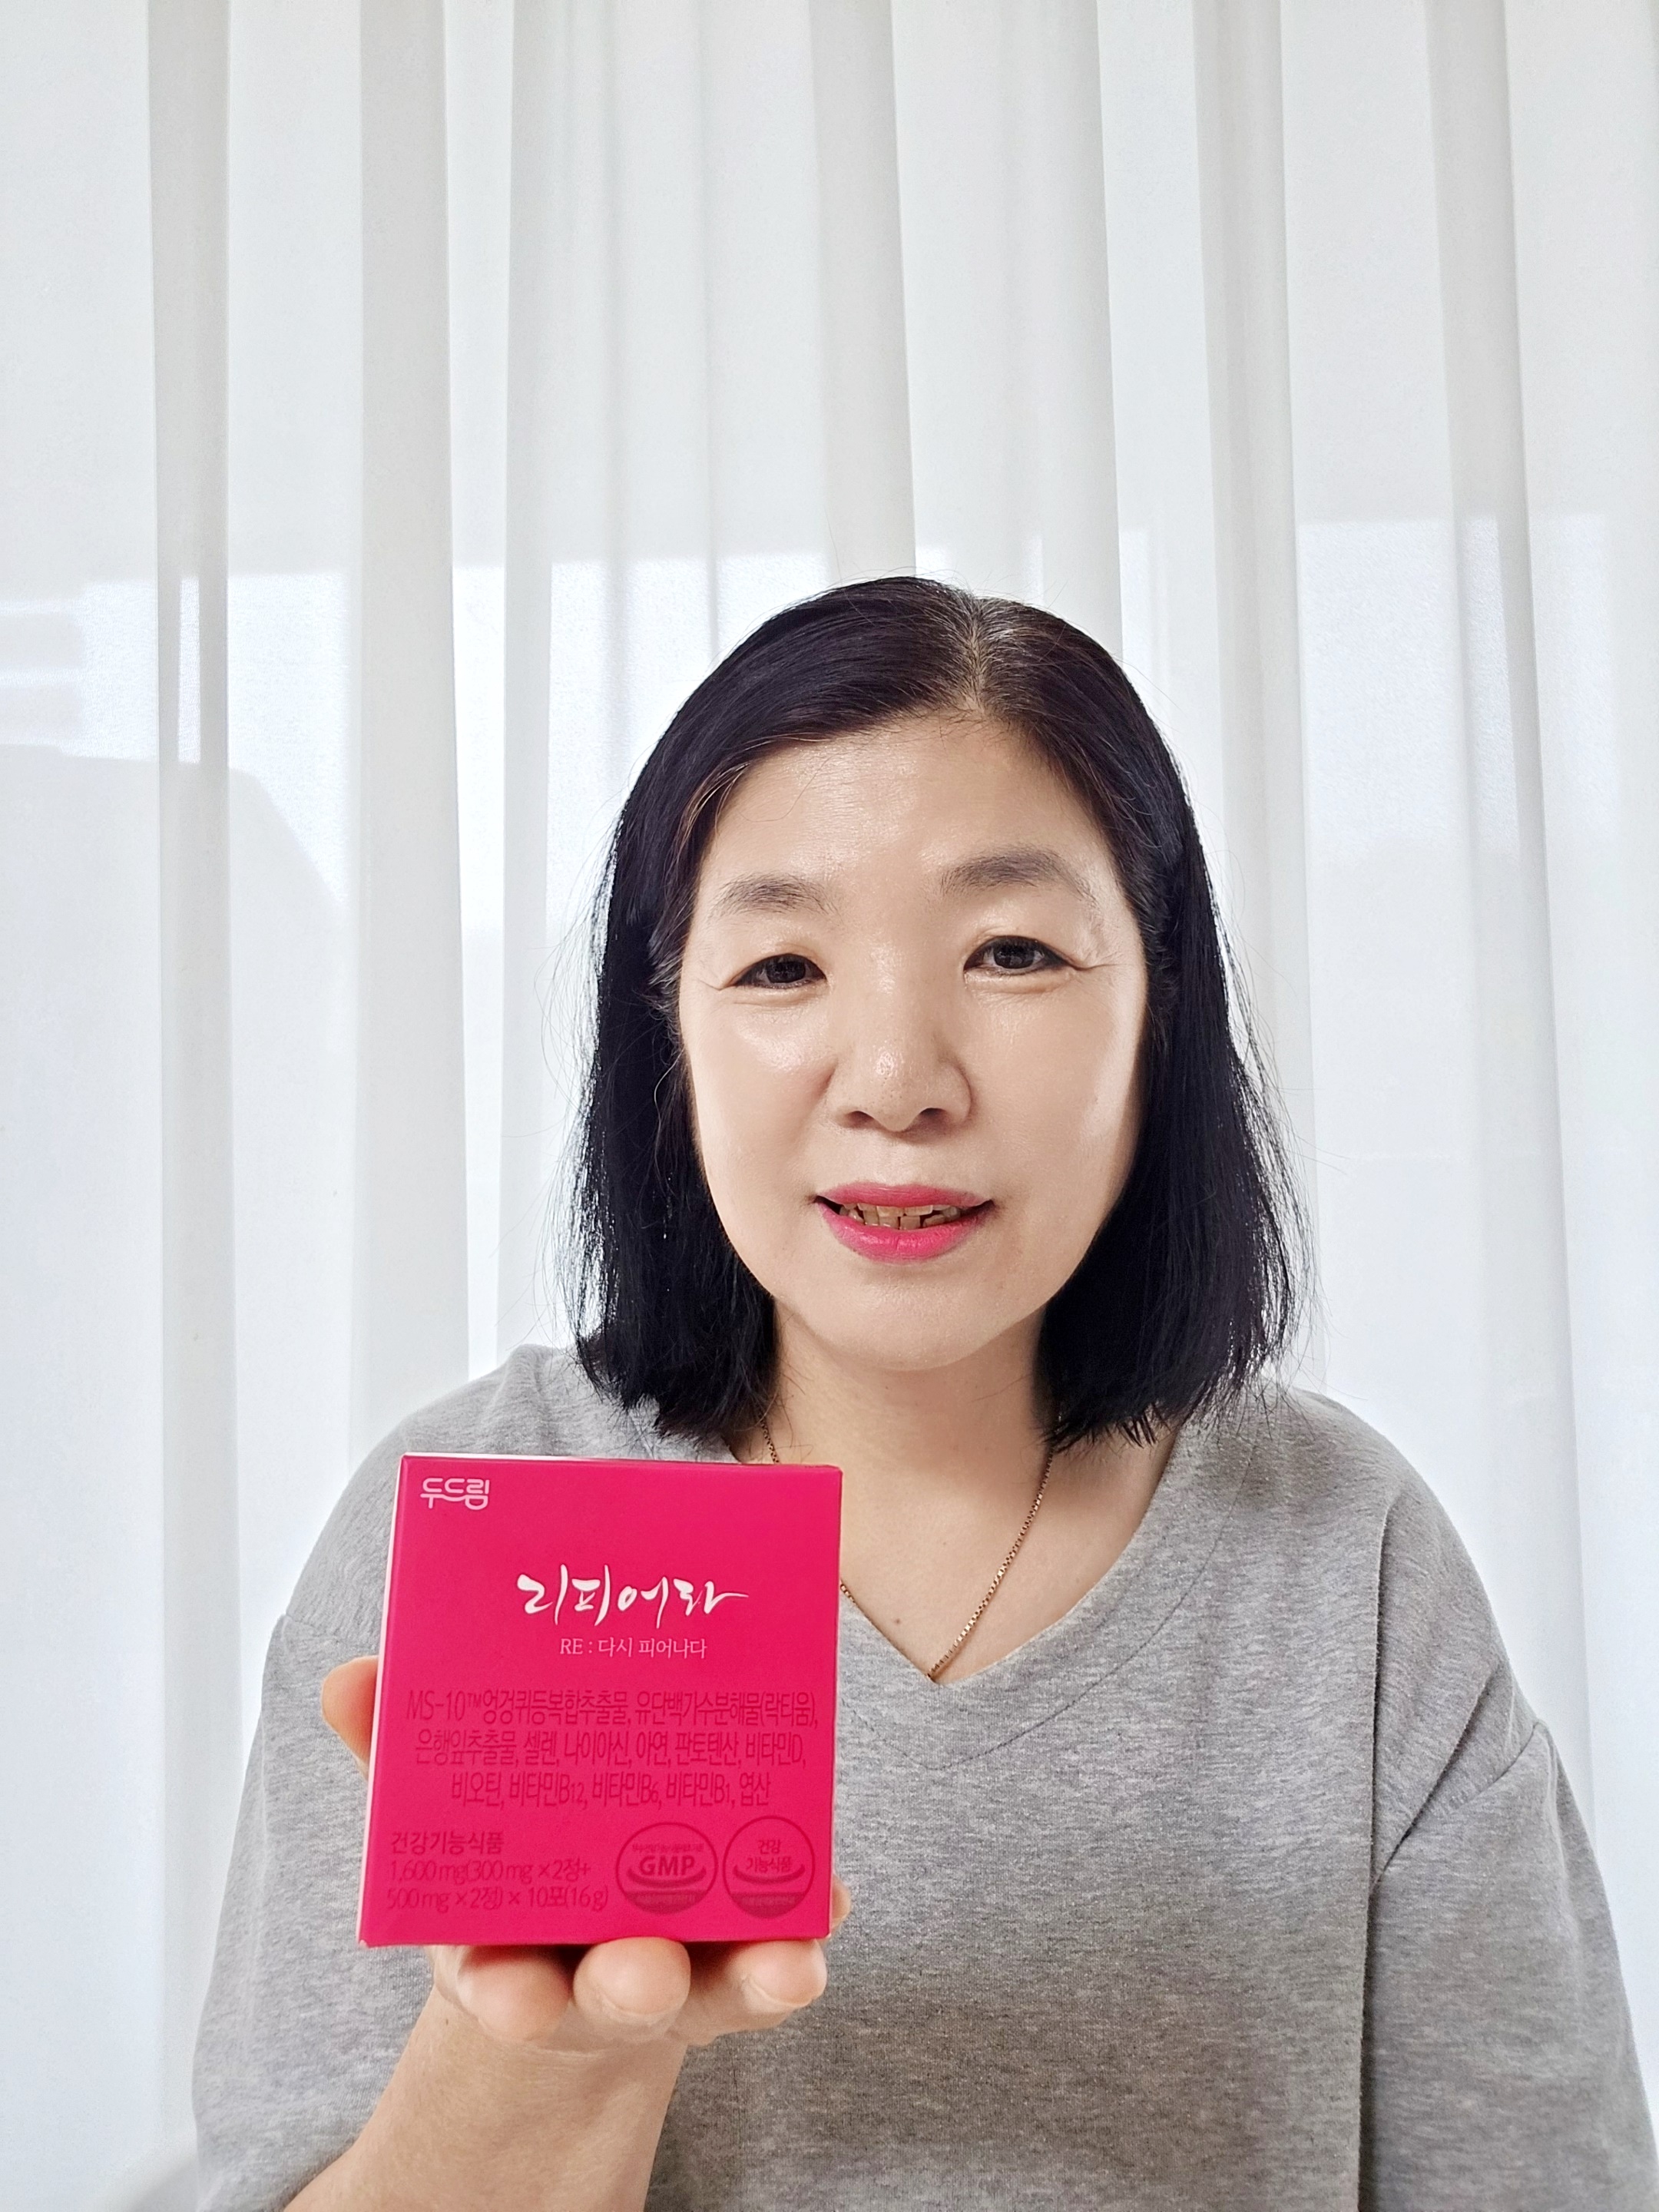 두드림
리피어라
RE : 다시 피어나다
MS-10™엉겅퀴등복합추출물, 유단백가수분해물(락티움),
은행잎추출물, 셀렌, 나이아신, 아연, 판토텐산, 비타민D,
비오틴, 비타민B12, 비타민B6, 비타민B1, 엽산
건강기능식품
1,600 mg(300 mg ×2정+
500 mg ×2정) × 10포(16 g)
GMP
건강
기능식품